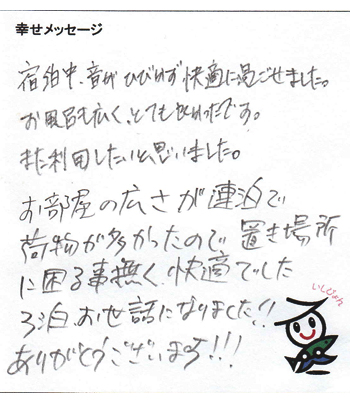 幸せメッセージ
宿泊中、音がひびかず快適に過ごせました。
お風呂も広く、とても良かったです。
また利用したいと思いました。
お部屋の広さが連泊で
荷物が多かったので置き場所
に困る事無く、快適でした
3泊お世話になりました!!
ありがとうございます!!!